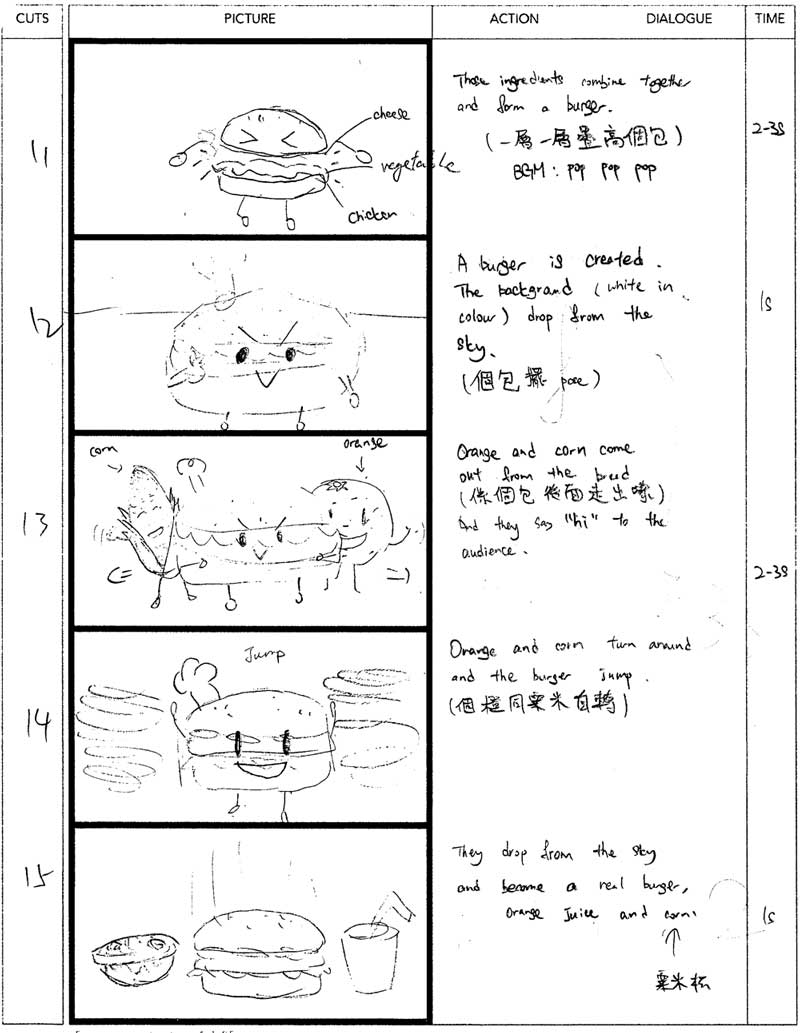 CUTS PICTURE ACTION DIALOGUE TIME
11
cheese
vegetable
chicken
These ingredients combine together
and form a burger.
(一層一層疊高個包)
BGM : pop pop pop
2-3s
12
A burger is created.
The backgrand (white in
colour) drop from the
sky.
(個包擺 pose)
1s
13
corn
orange
Orange and corn come
out from the bread
(係個包後面走出嚟)
And they say "hi" to the
audience.
2-3s
14
Jump
Orange and corn turn around
and the burger jump.
(個橙同粟米自轉)
15
They drop from the sky
and become a real burger,
orange Juice and corn.
粟米杯
1s